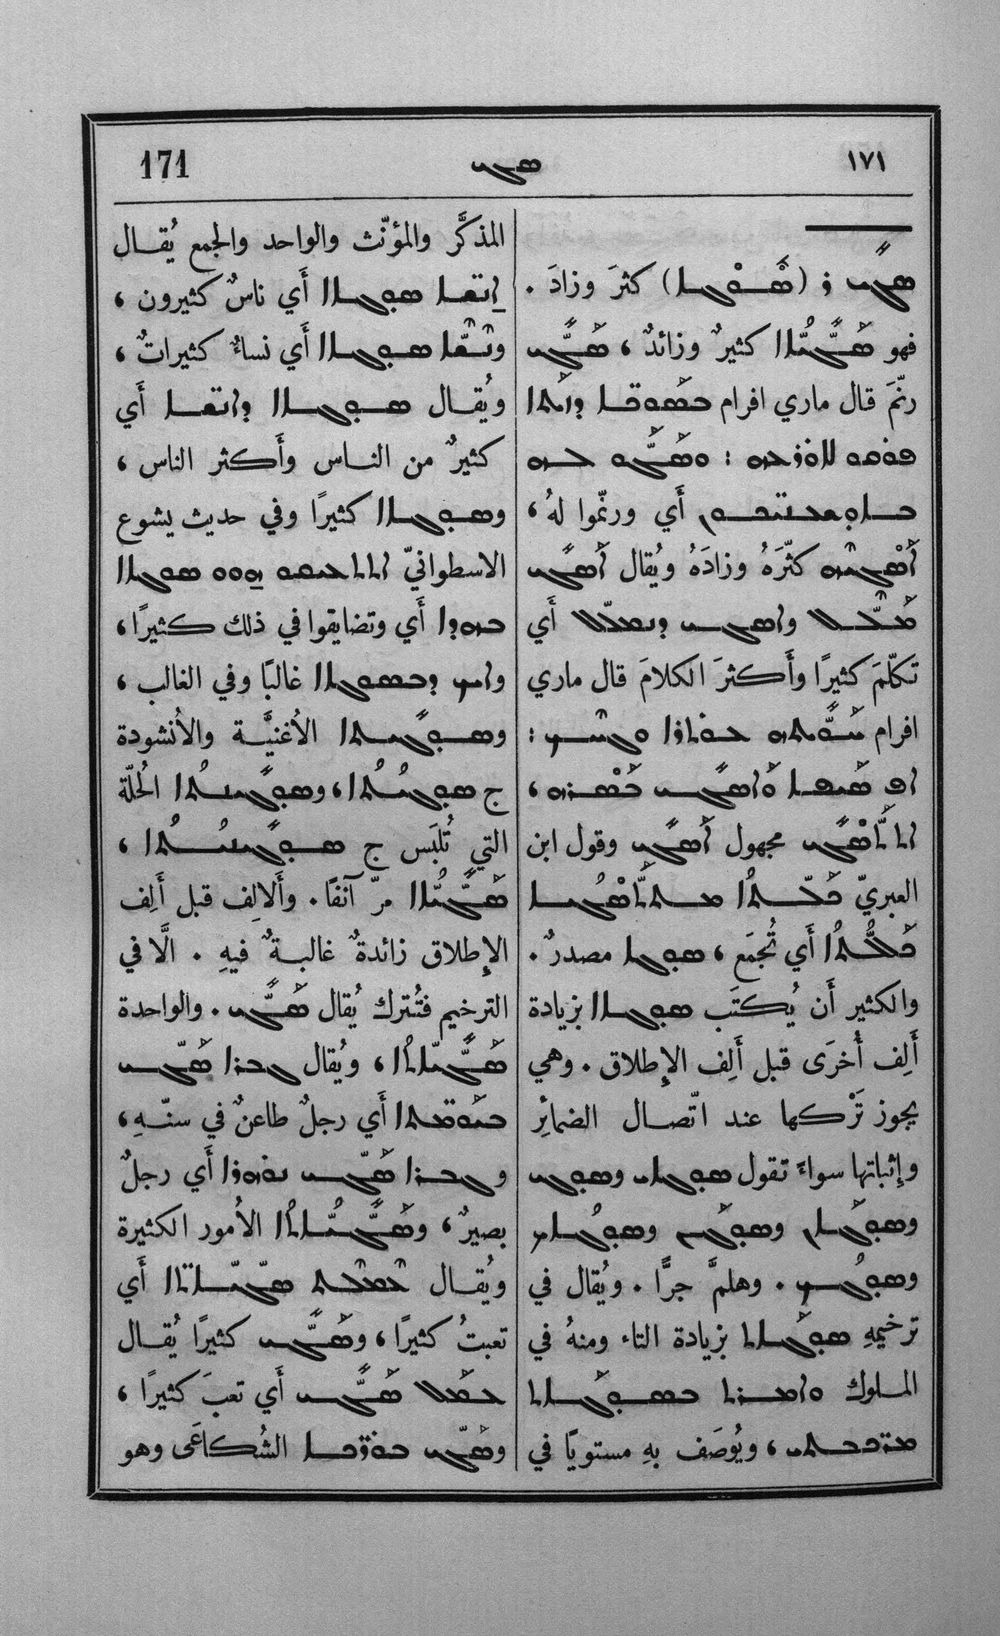 171 ܣܓܝ ١٧١
ܣܓܝ (ܢܣܓܐ) كثرَ وزادَ .
فهو ܣܓܝܐܐ كثيرٌ وزائدٌ ، ܣܓܝ
رنّمَ قال ماري افرام
ܘܣܓܝܘ ܠܗ
أَي ورنّموا لهُ ،
ܐܣܓܝܗ كثّرَهُ وزادَهُ ويُقال ܐܣܓܝ
ܡܠܠ وܐܣܓܝ ܕܢܡܠܠ أَي
تكلّمَ كثيرًا وأَكثرَ الكلامَ قال ماري
افرام
ܐܦ
ܐܬܬܣܓܝ مجهول ܐܣܓܝ وقول ابن
العبريّ
أَي تُجمَع ، ܣܘܓܐܐ مصدرٌ .
والكثير أَن يُكتَب ܣܘܓܐܐ بزيادة
أَلِف أُخرَى قبل أَلِف الإِطلاق . وهي
يجوز تَرْكها عند اتّصال الضمائِر
وإِثباتها سواءً تقول ܣܘܓܐܝ وܣܘܓܝ
وܣܘܓܐܢ وܣܘܓܢ وܣܘܓܐܟ
وܣܘܓܟ . وهلمَّ جرًّا . ويُقال في
ترخيمهِ ܣܘܓܐܬ بزيادة التاء ومنهُ في
الملوك
ويُوصَف بهِ مستويًا في
المذكَّر والمؤنّث والواحد والجمع يُقال
ܐܢܫܐ ܣܘܓܐܐ أَي ناسٌ كثيرون ،
وܢܫܐ ܣܘܓܐܐ أَي نساءٌ كثيراتٌ ،
ويُقال ܣܘܓܐܐ ܕܐܢܫܐ أَي
كثيرٌ من الناس وأَكثر الناس ،
وܣܘܓܐܐ كثيرًا وفي حديث يشوع
الاسطوانيّ ܐܬܐܠܨܘ ܗܘܘ ܣܘܓܐܐ
ܒܗܕܐ أَي وتضايقوا في ذلك كثيرًا ،
وܐܝܟ ܕܒܣܘܓܐܐ غالبًا وفي الغالب ،
وܣܘܓܝܬܐ الأُغنيَّة والأُنشودة
ج ܣܘܓܝܬܐ ، وܣܘܓܢܝܬܐ الحُلّة
التي تُلبَس ج ܣܘܓܢܝܬܐ ،
ܣܓܝܐܐ مرّ آنفًا . وأَلالِف قبل أَلِف
الإِطلاق زائدةٌ غالبةٌ فيهِ . الَّا في
الترخيم فتُترك يُقال ܣܓܝ . والواحدة
ܣܓܝܐܬܐ ، ويُقال ܓܒܪܐ ܣܓܝ
ܒܝܘܡܬܐ أَي رجلٌ طاعنٌ في سنّهِ ،
وܓܒܪܐ ܣܓܝ ܢܗܘܪܐ أَي رجلٌ
بصيرٌ ، وܣܓܝܐܬܐ الأُمور الكثيرة
ويُقال ܥܡܠܬ ܣܓܝܐܬܐ أَي
تعبتُ كثيرًا ، وܣܓܝ كثيرًا يُقال
ܥܡܠ ܣܓܝ أَي تعبَ كثيرًا ،
وܣܓܝ الشُكاعَى وهو